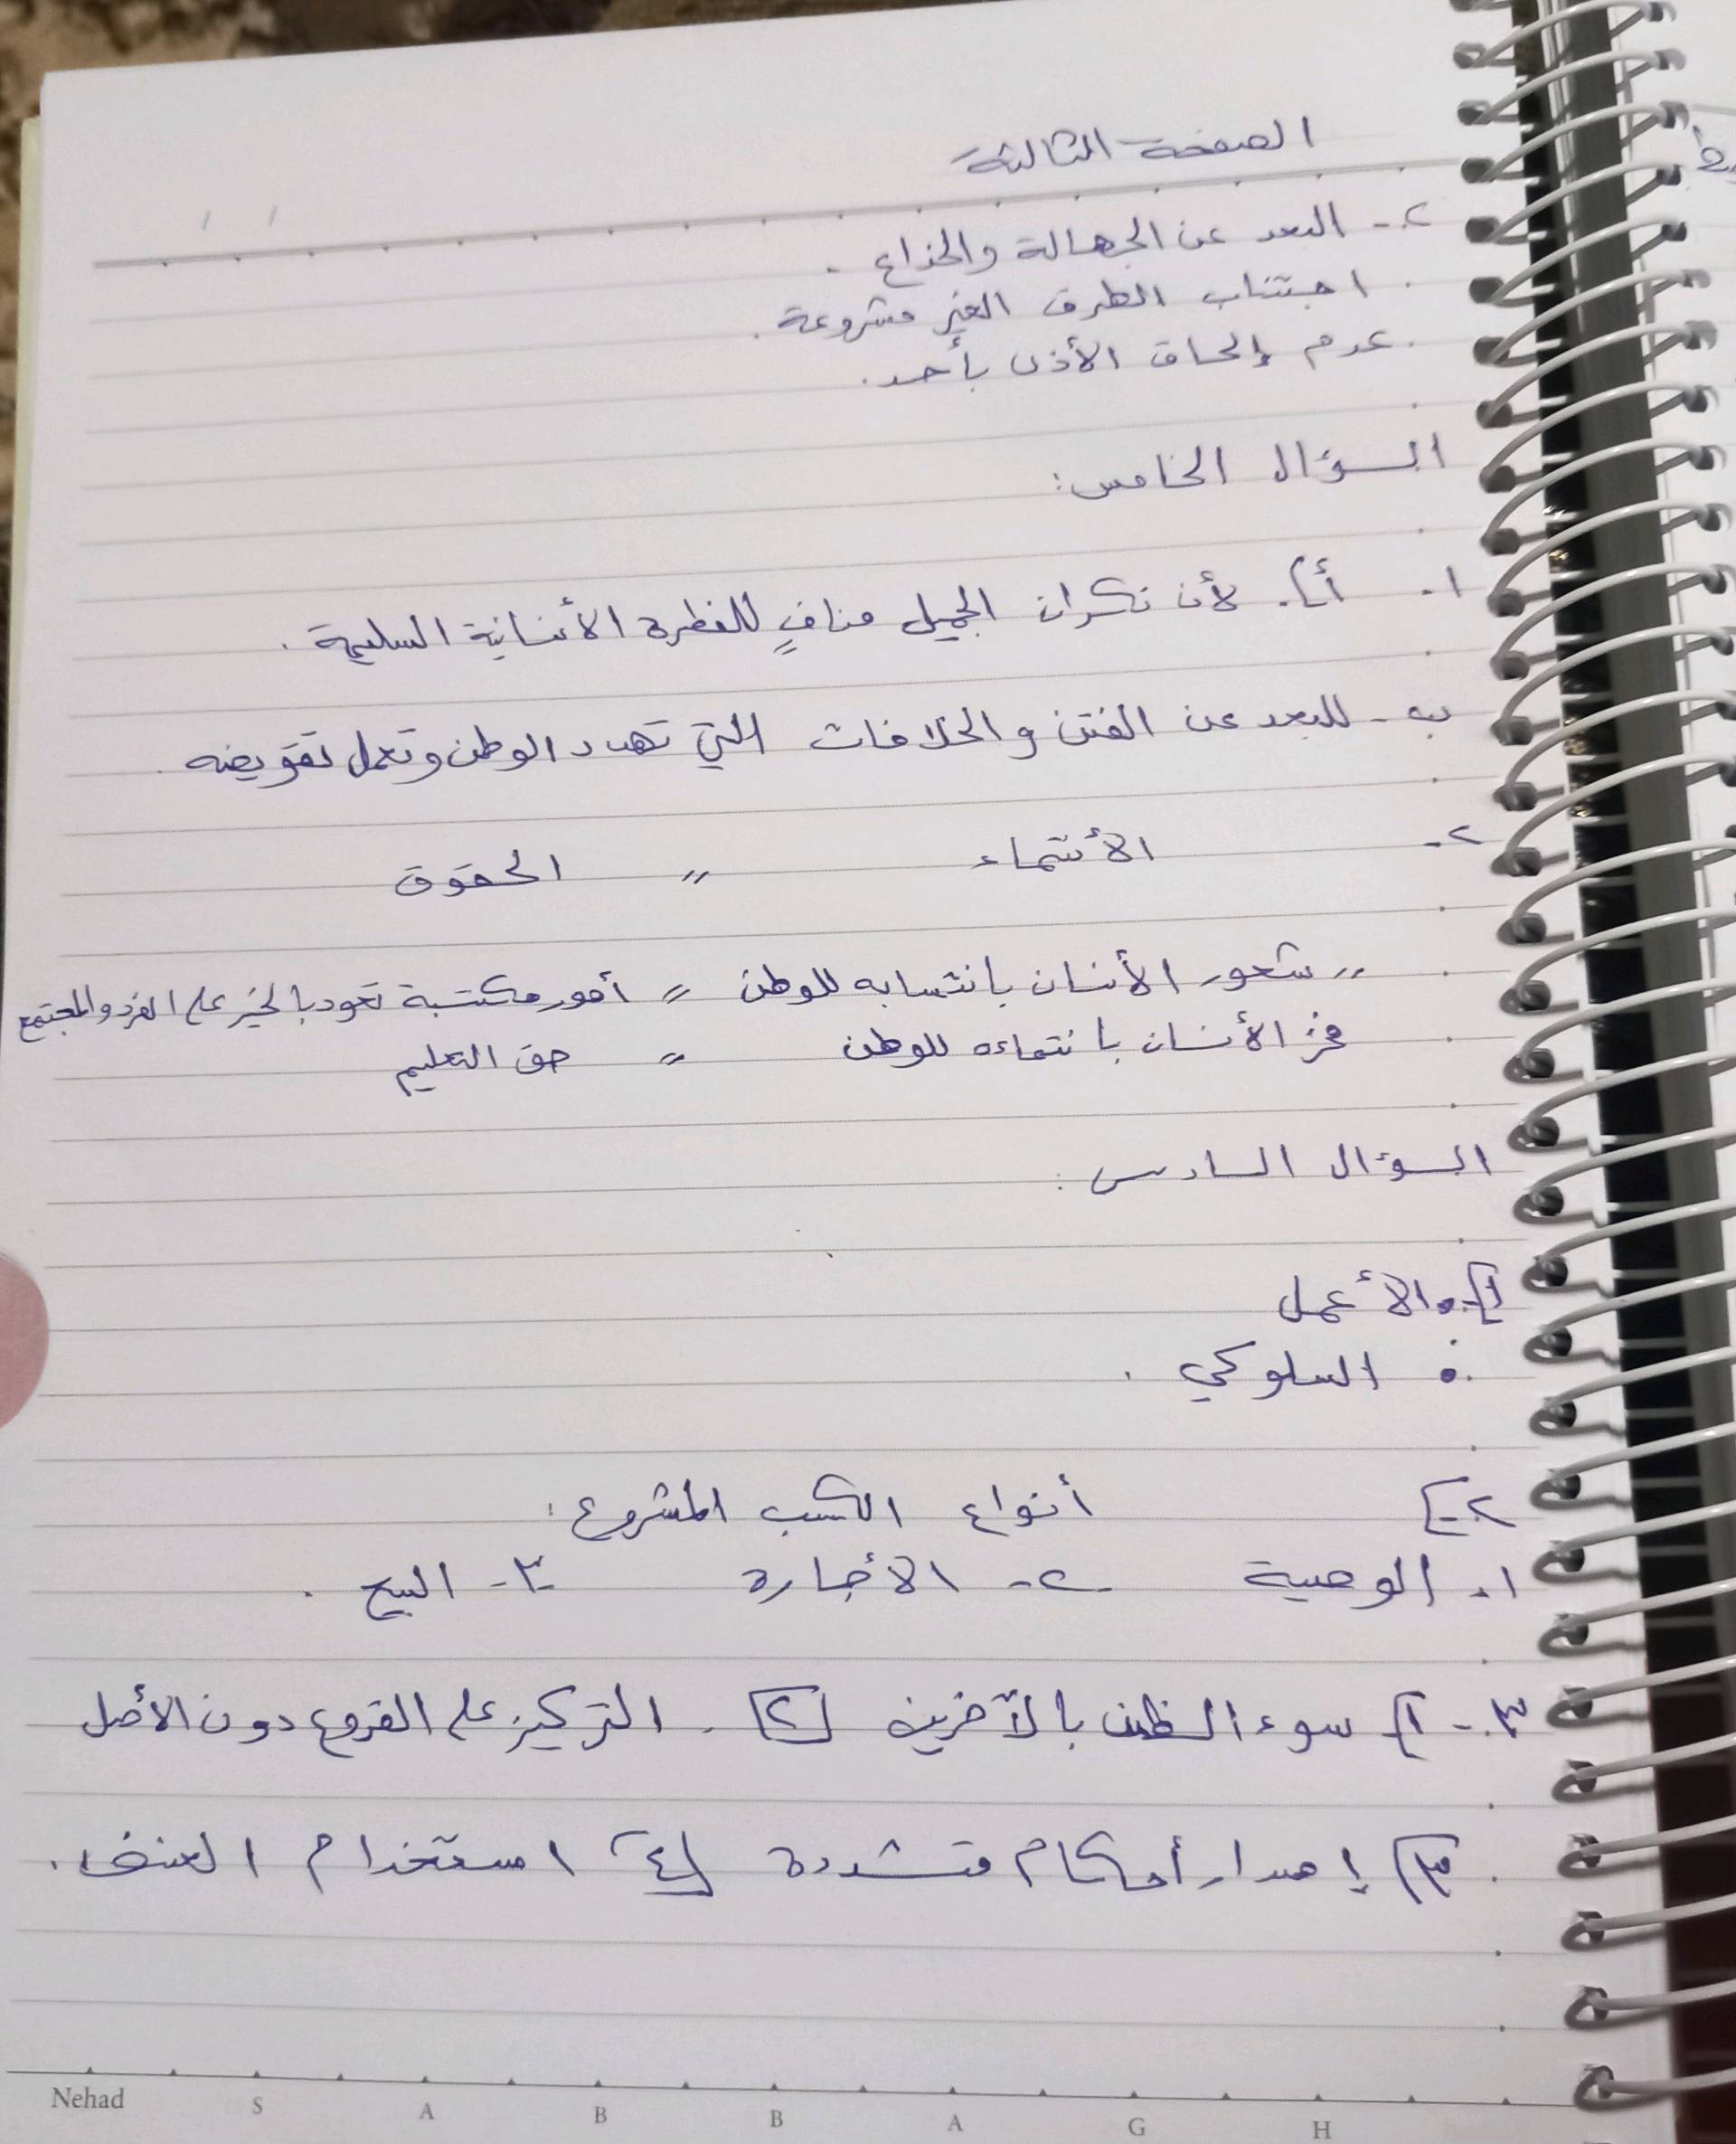 الصفحة الثالثة
٢- البعد عن الجهالة والخداع .
. اجتناب الطرق الغير مشروعة .
. عدم إلحاق الأذى بأحد .
السؤال الخامس :
١- أ). لأن نكران الجميل منافٍ للفطرة الأنسانية السليمة .
ب- للبعد عن الفتن والخلافات التي تهدد الوطن وتعمل تقويضه .
٢- الأنتماء // الحقوق
// شعور الأنسان بانتسابه للوطن // أمور مكتسبة تعود بالخير على الفرد والمجتمع
فخر الأنسان بانتماءه للوطن // حق التعليم
السؤال السادس :
١]. الأعمل
. السلوكي .
٢-] أنواع الكسب المشروع :
١. الوصية ٢- الأجارة ٣- البيع .
٣- ١) سوء الظن بالآخرين ٢) . التركيز على الفروع دون الأصل
٣) إصدار أحكام متشددة ٤) استخدام العنف .
Nehad S A B B A G H